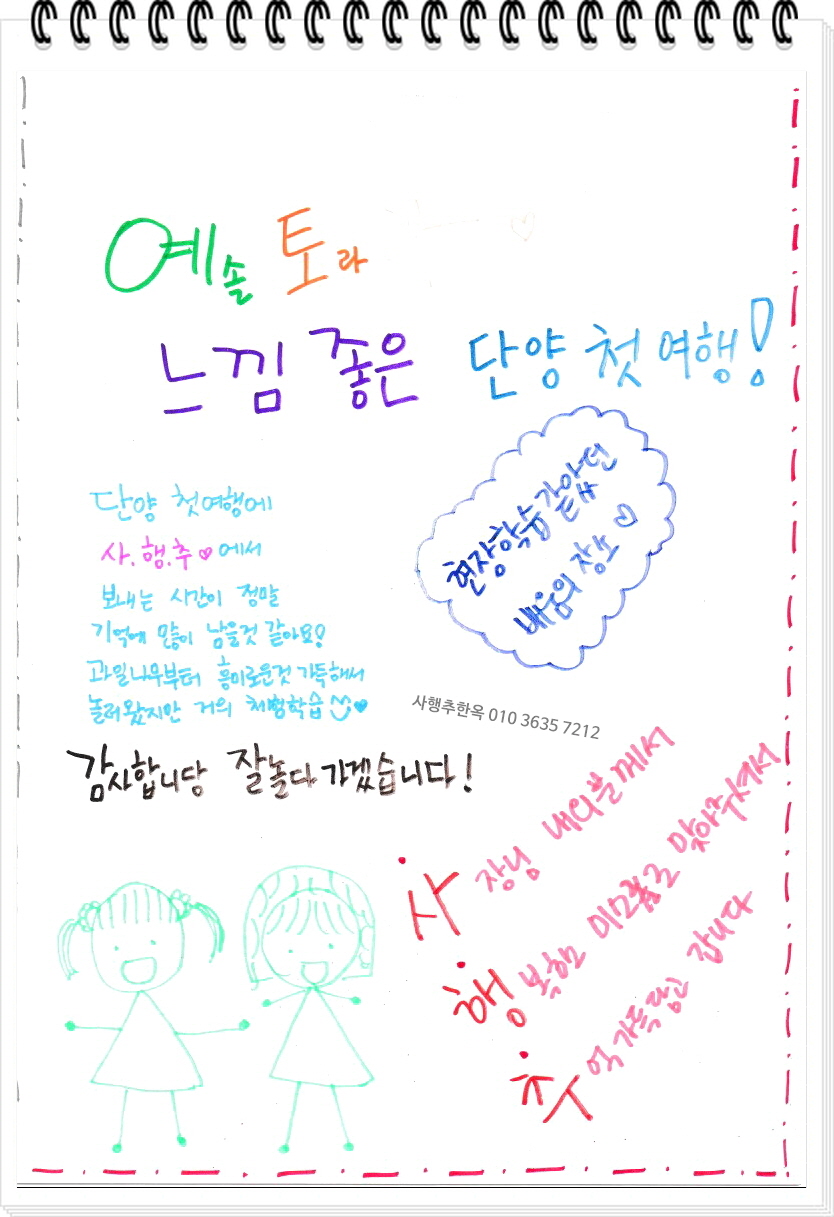 예솔 토라
느낌 좋은 단양 첫 여행!
현장학습 같았던
배움의 장소
단양 첫여행에
사.행.추♡에서
보내는 시간이 정말
기억에 많이 남을것 같아요!
과일나무부터 흥미로운것 가득해서
놀러왔지만 거의 체험학습
사행추한옥 010 3635 7212
감사합니당 잘놀다가겠습니다!
사장님 내외분께서
행복한 미소로 맞아주셔서
추억가득담고 갑니다